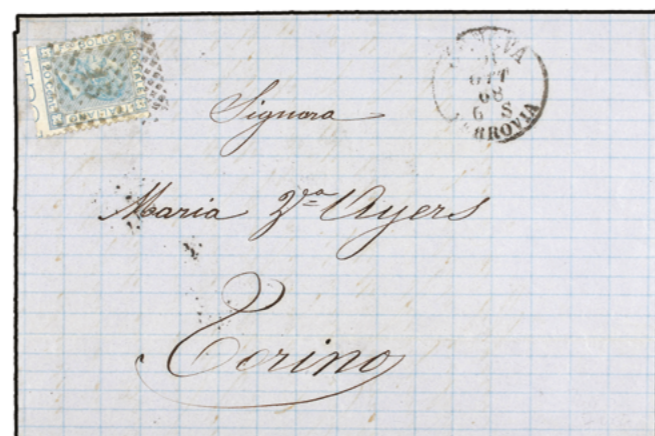 GENOVA
21
OTT
68
6 S
FERROVIA
Signora
Maria V.a Ayers
Torino